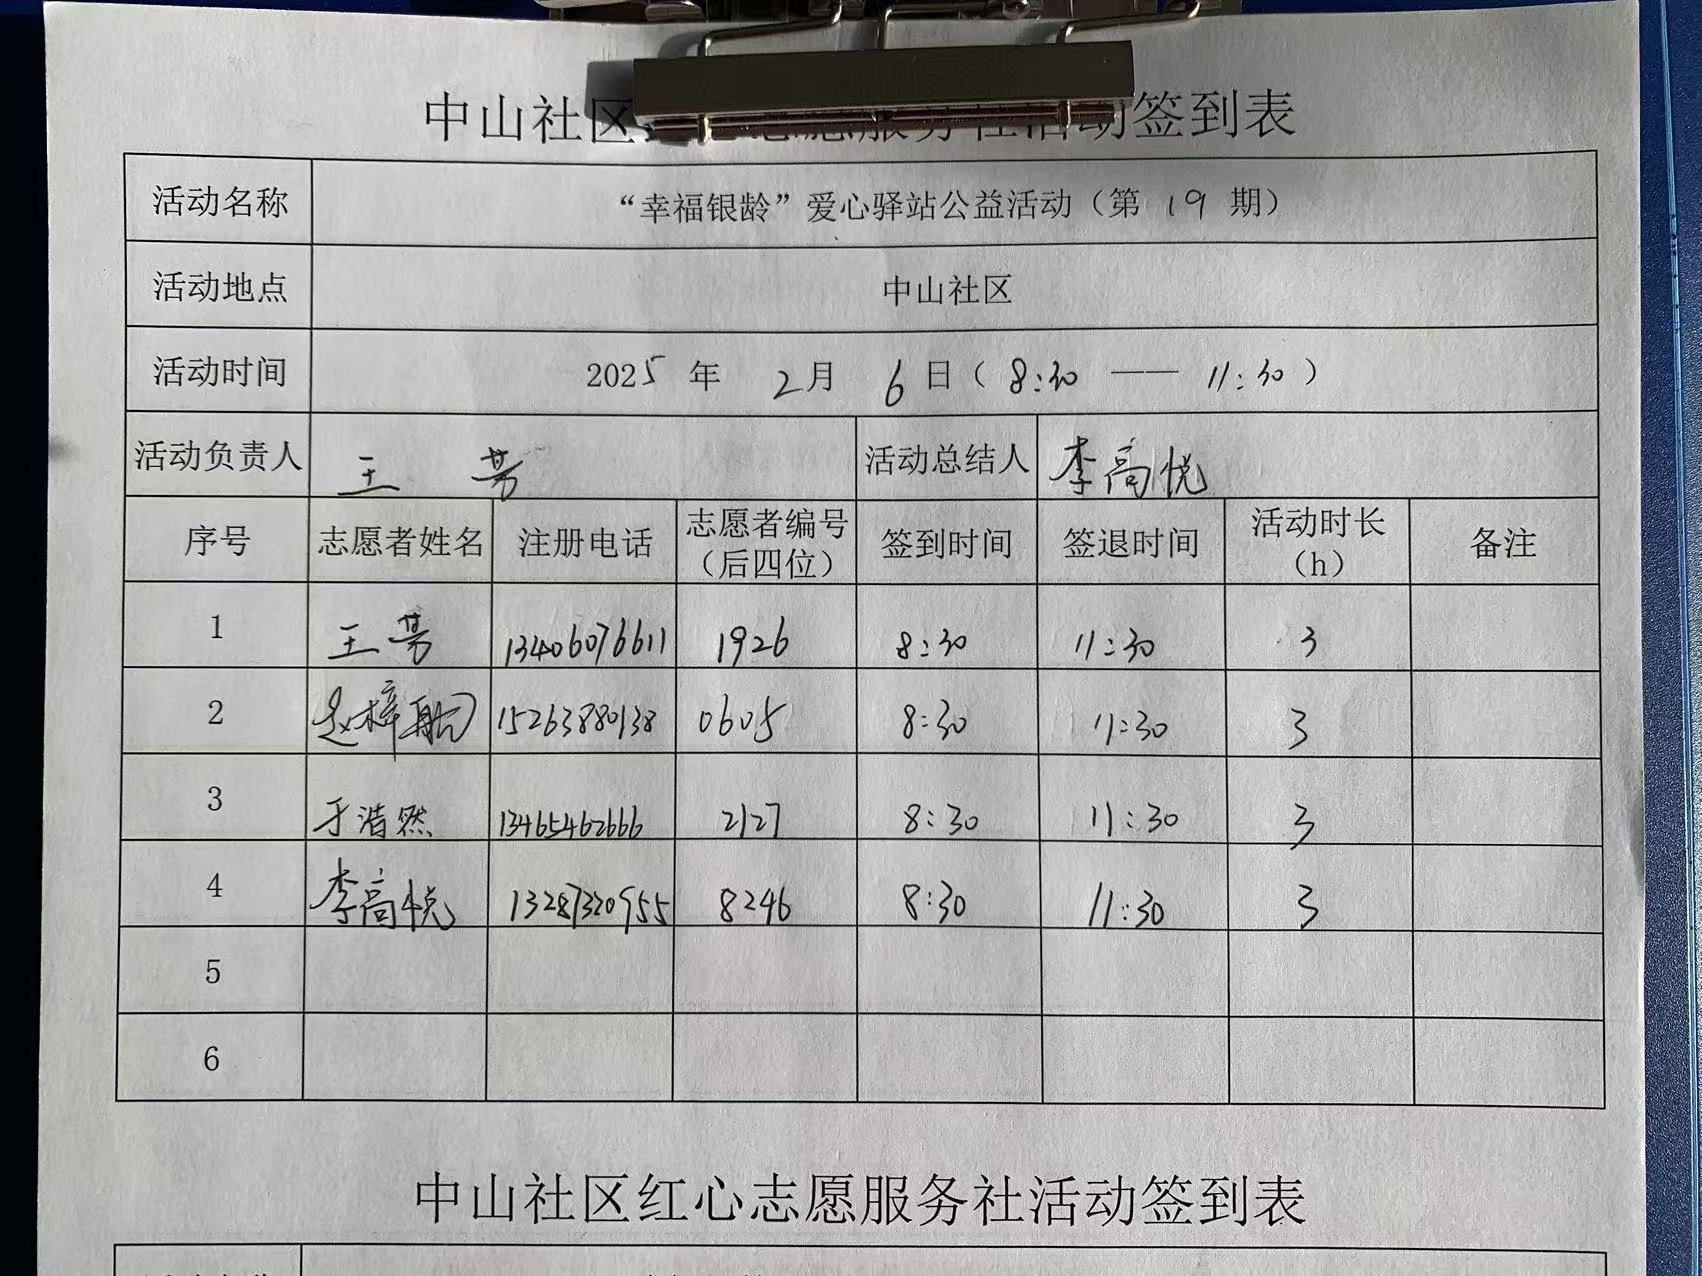 中山社区志愿服务社活动签到表
活动名称 “幸福银龄”爱心驿站公益活动（第 19 期）
活动地点 中山社区
活动时间 2025 年 2月 6日（8:30 —— 11:30）
活动负责人 王芳 活动总结人 李高悦
序号 志愿者姓名 注册电话 志愿者编号（后四位） 签到时间 签退时间 活动时长（h） 备注
1 王芳 13406076611 1926 8:30 11:30 3
2 赵梓航 15263880138 0605 8:30 11:30 3
3 于浩然 13465462666 2127 8:30 11:30 3
4 李高悦 13287320955 8246 8:30 11:30 3
5
6
中山社区红心志愿服务社活动签到表